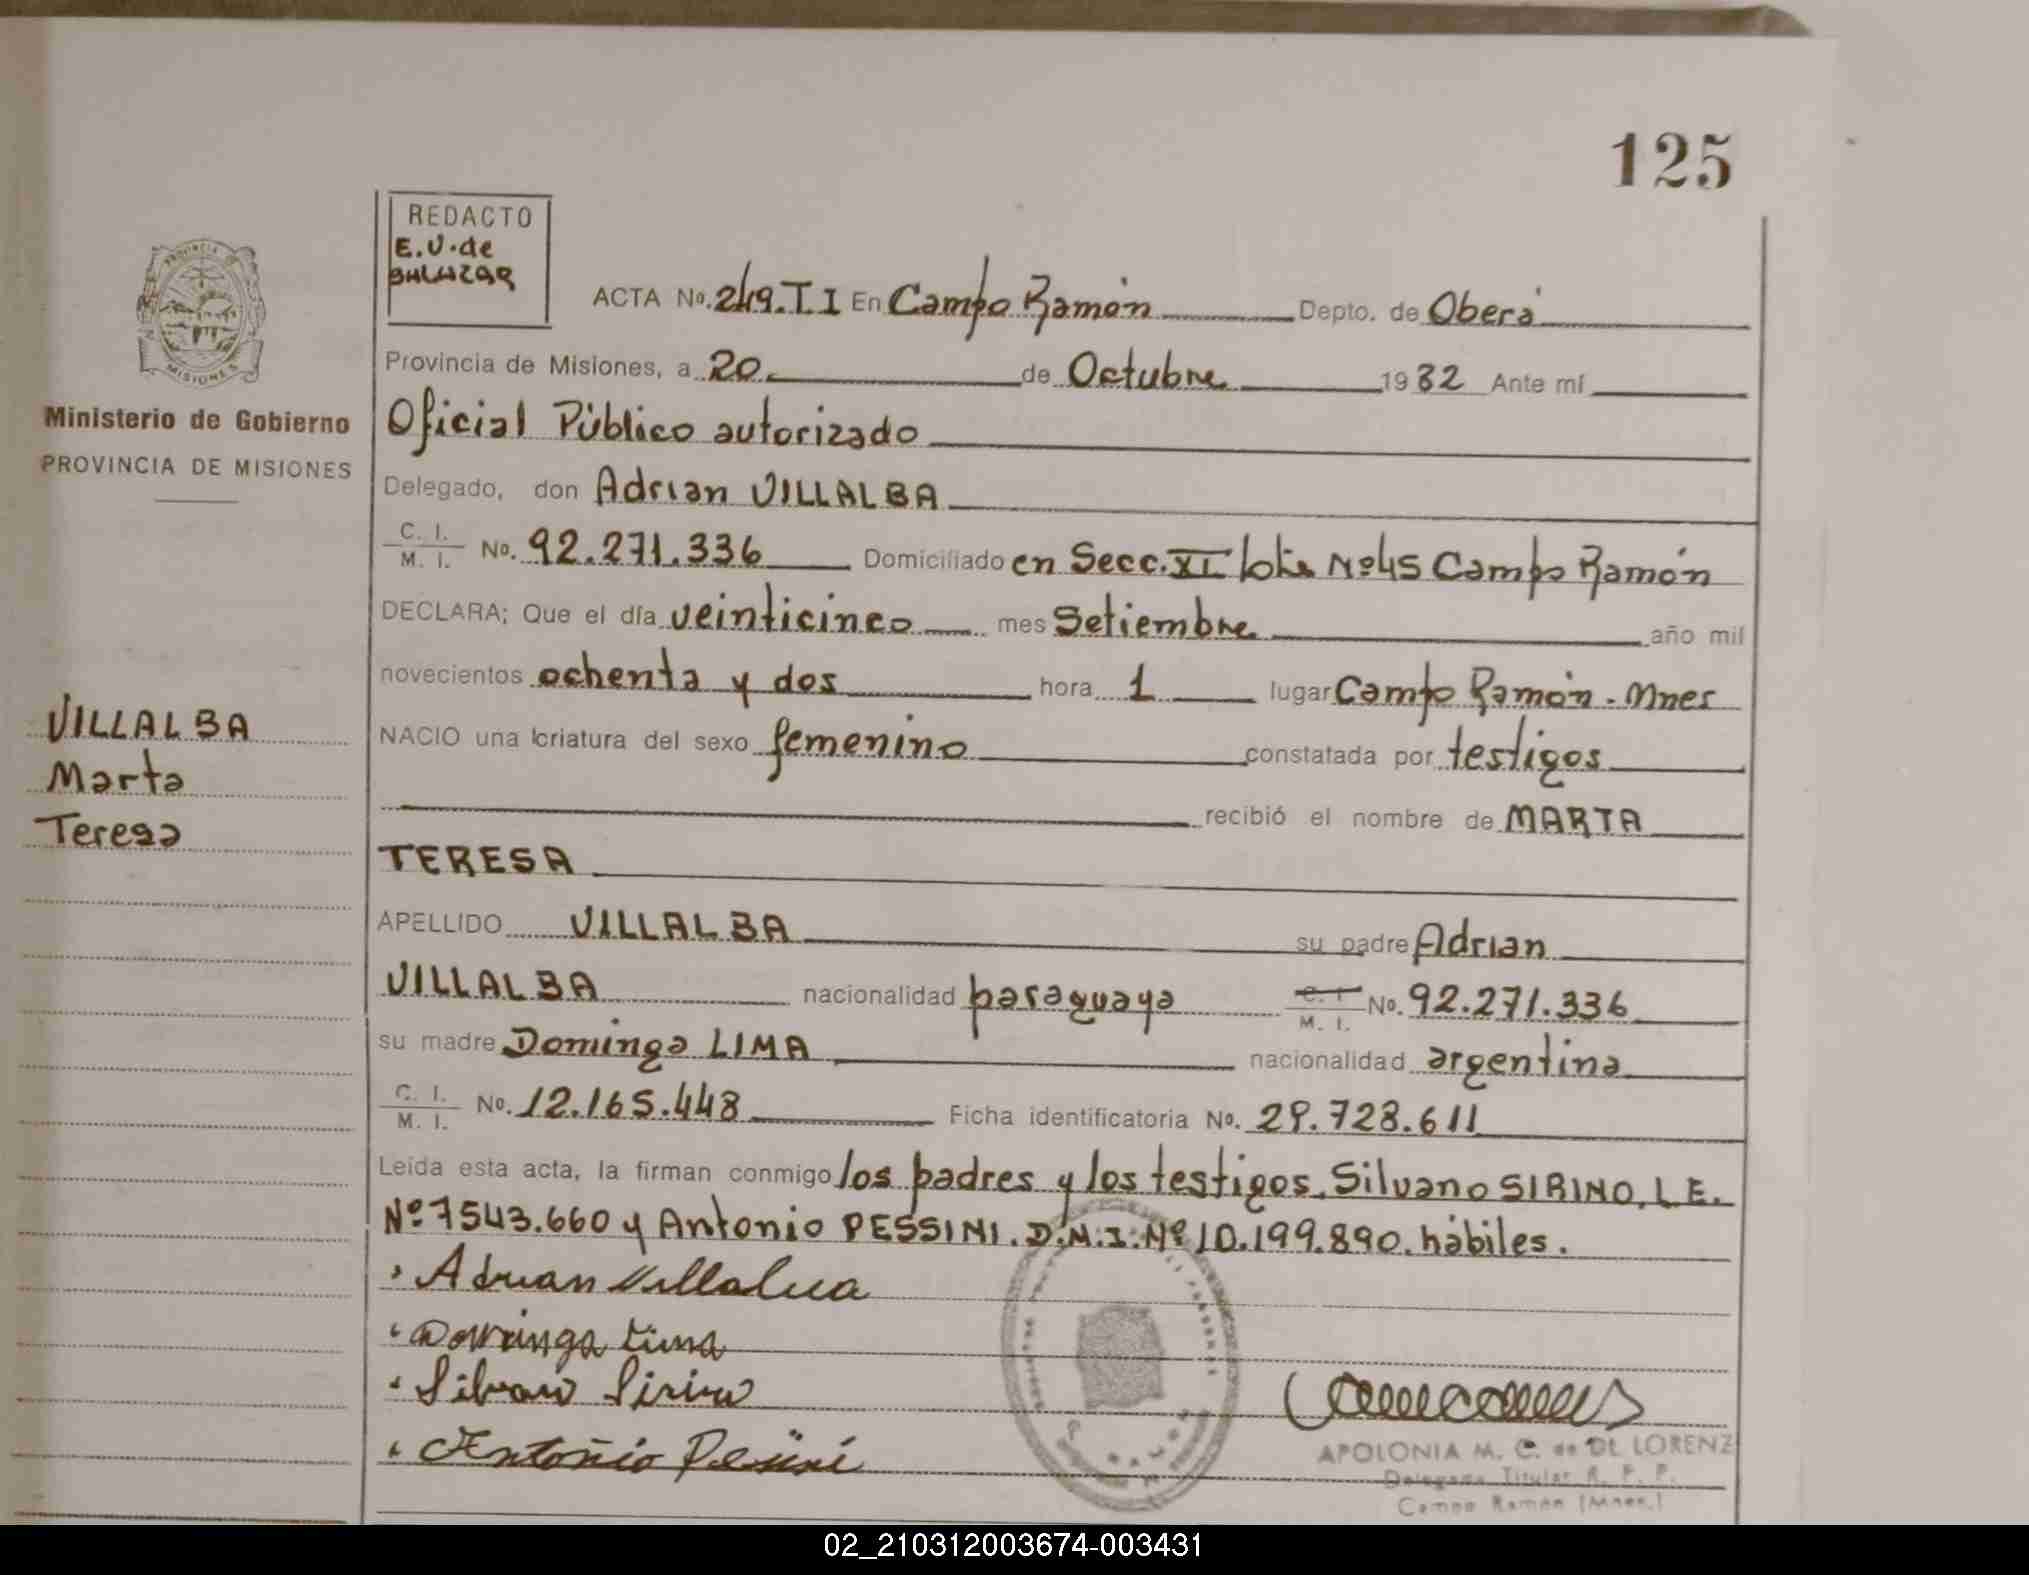 125
REDACTO
E.V. de
BALUZAR
ACTA No. 249.T.I En Campo Ramón Depto. de Oberá
Provincia de Misiones, a 20 de Octubre 1982 Ante mí
Oficial Público autorizado
Delegado, don Adrian VILLALBA
C. I.
M. I. No. 92.271.336 Domiciliado en Secc. XI lote Nº45 Campo Ramón
DECLARA; Que el día veinticinco mes Setiembre año mil
novecientos ochenta y dos hora 1 lugar Campo Ramón - Mnes
NACIO una criatura del sexo femenino constatada por testigos
recibió el nombre de MARTA
TERESA
APELLIDO VILLALBA su padre Adrian
VILLALBA nacionalidad paraguaya C. I. M. I. No. 92.271.336
su madre Dominga LIMA nacionalidad argentina
C. I.
M. I. No. 12.165.448 Ficha identificatoria No. 29.728.611
Leída esta acta, la firman conmigo los padres y los testigos, Silvano SIRINO, L.E.
Nº 7543.660 y Antonio PESSINI. D.N.I. Nº 10.199.890. hábiles.
Adrian Villalva
Dominga Lima
Silvano Sirino
Antonio Pessini
APOLONIA M. C. de DE LORENZ
Delegada Titular R. P. P.
Campo Ramón (Mnes.)
PROVINCIA
MISIONES
Ministerio de Gobierno
PROVINCIA DE MISIONES
VILLALBA
Marta
Teresa
02_210312003674-003431